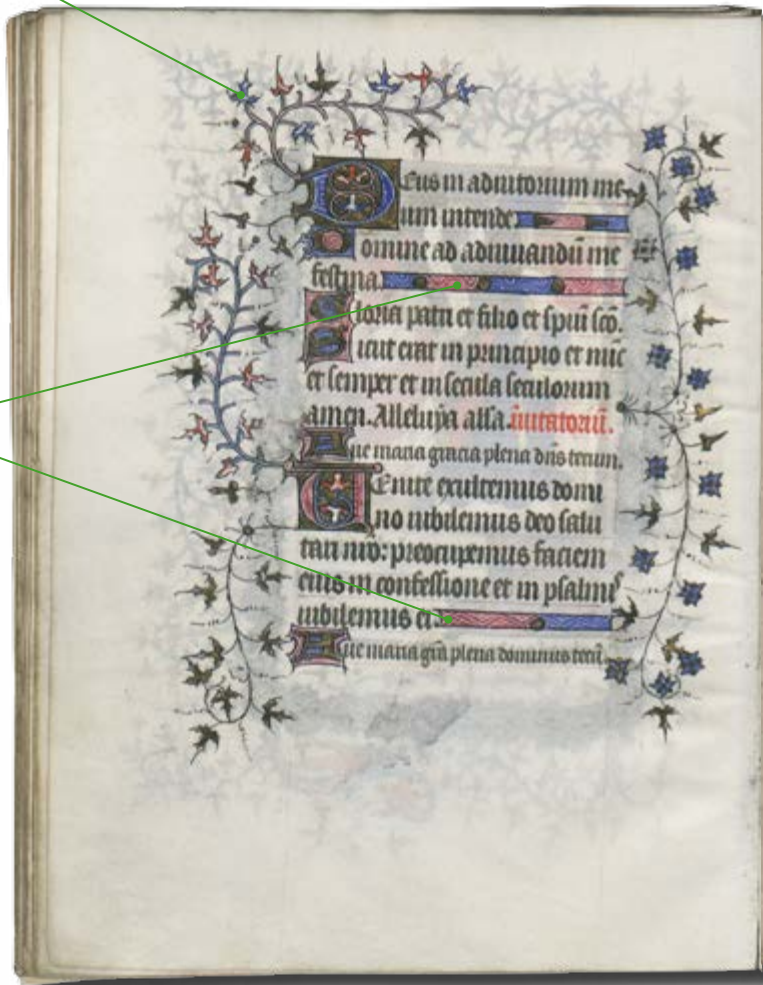 Deus in adiutorium me
um intende.
Domine ad adiuuandū me
festina.
Gloria patri et filio et spiūi sc̄o.
Sicut erat in principio et nūc
et semper et in secula seculorum
amen. Alleluya alla īuitatoriū.
Aue maria gracia plena dn̄s tecum.
Uenite exultemus domi
no iubilemus deo salu
tari nr̄o: preocupemus faciem
eius in confessione et in psalmis
iubilemus ei.
Aue maria gr̄a plena dominus tecū.